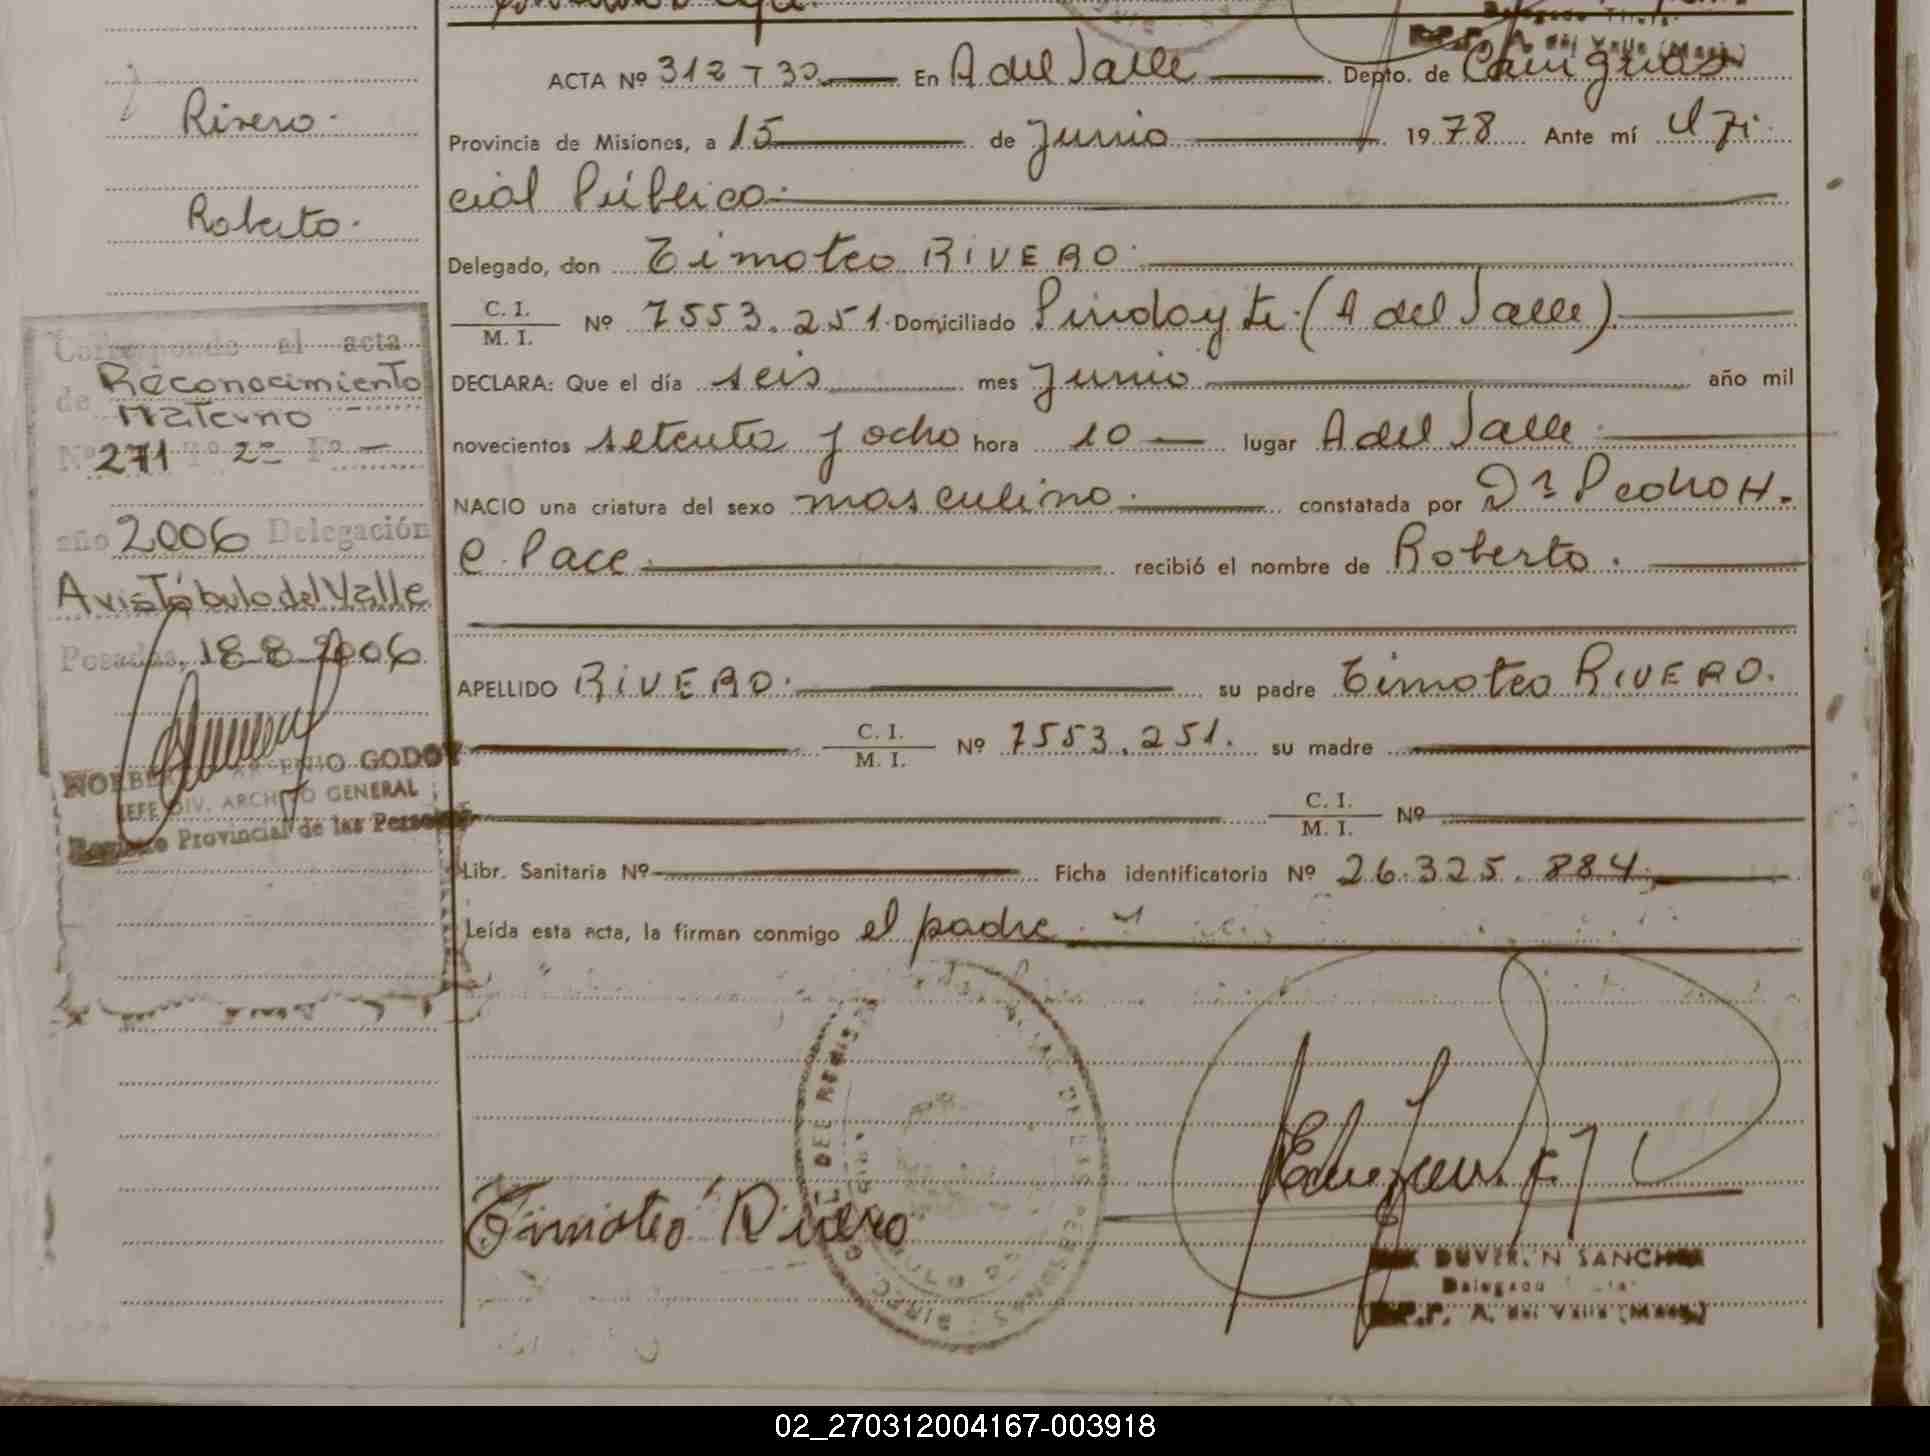 Rivero.
Roberto.
Corresponde al acta
de Reconocimiento
Materno
Nº 271 Tº 2º Fº —
año 2006 Delegación
Aristóbulo del Valle
Posadas, 18-8-2006
GODOY
JEFE DIV. ARCHIVO GENERAL
Registro Provincial de las Personas
A. del Valle (Mnes.)
ACTA Nº 312 T 3º En A del Valle Depto. de Cainguas
Provincia de Misiones, a 15 de Junio 19 78 Ante mí Ofi-
cial Público.
Delegado, don Timoteo RIVERO.
C. I.
M. I. Nº 7553.251. Domiciliado Pindayti. (A del Valle).
DECLARA: Que el día seis mes Junio año mil
novecientos setenta y ocho hora 10 lugar A del Valle.
NACIO una criatura del sexo masculino. constatada por Dr Pedro H.
C. Pace recibió el nombre de Roberto.
APELLIDO RIVERO. su padre Timoteo RIVERO.
C. I.
M. I. Nº 7553.251. su madre
C. I.
M. I. Nº
Libr. Sanitaria Nº Ficha identificatoria Nº 26.325.884.
Leída esta acta, la firman conmigo el padre.
Timoteo Rivero
SANCHEZ
Delegado
A. del Valle (Mnes.)
02_270312004167-003918